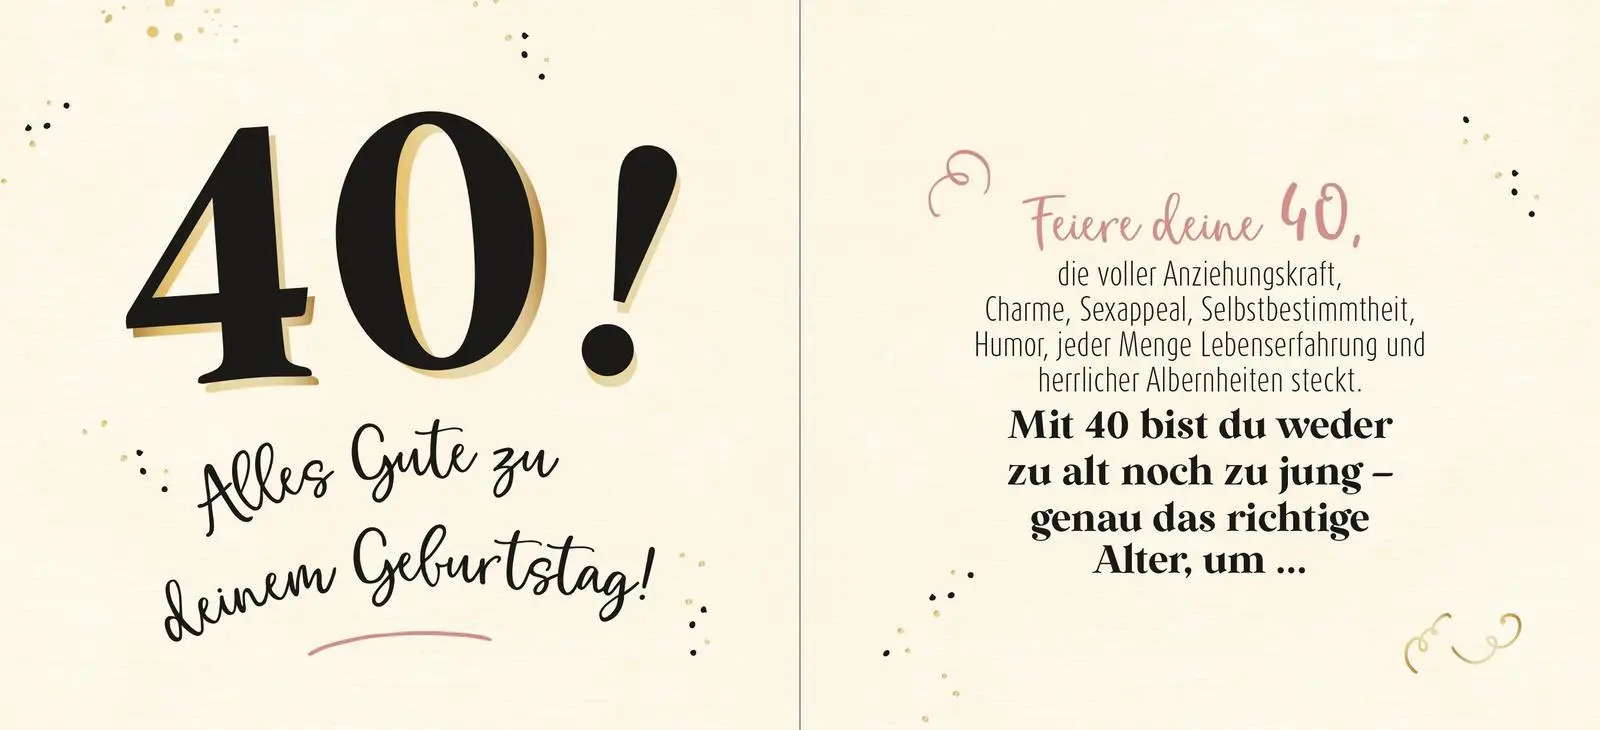 40!
Alles Gute zu
deinem Geburtstag!
Feiere deine 40,
die voller Anziehungskraft,
Charme, Sexappeal, Selbstbestimmtheit,
Humor, jeder Menge Lebenserfahrung und
herrlicher Albernheiten steckt.
Mit 40 bist du weder
zu alt noch zu jung –
genau das richtige
Alter, um ...